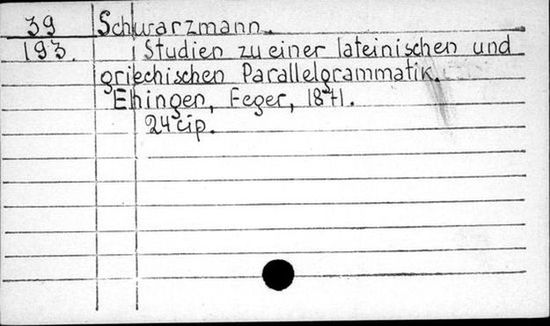 39 Schwarzmann.
193. Studien zu einer lateinischen und
griechischen Parallelgrammatik.
Ehingen, Feger, 1871.
24 cip.